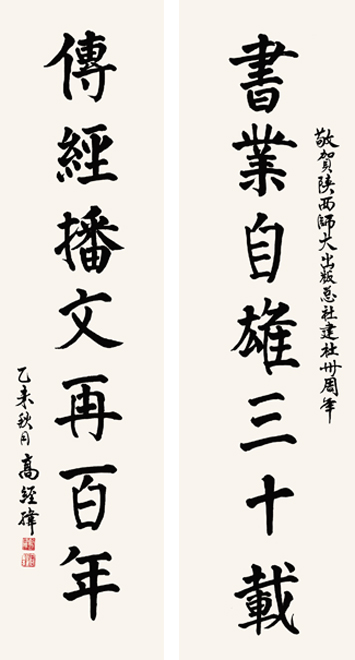 敬賀陝西師大出版总社建社卅周年
書業自雄三十載
傳經播文再一百年
乙未秋月高經緯